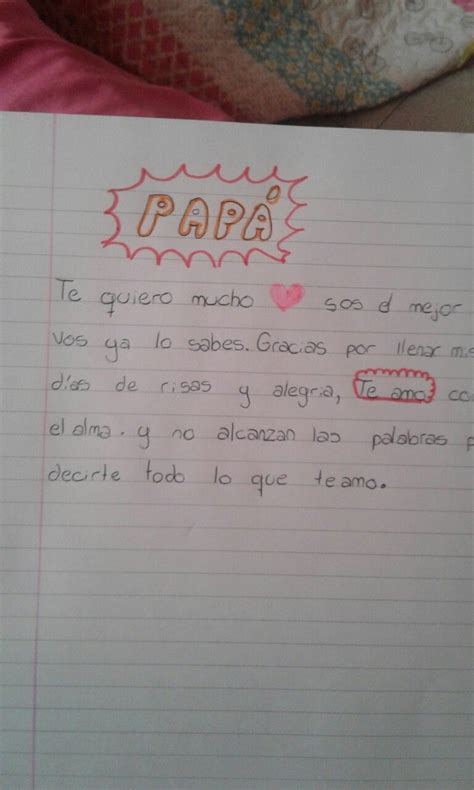 PAPÁ
Te quiero mucho sos el mejor
vos ya lo sabes. Gracias por llenar mis
días de risas y alegria, Te amo co
el alma. y no alcanzan las palabras p
decirte todo lo que te amo.